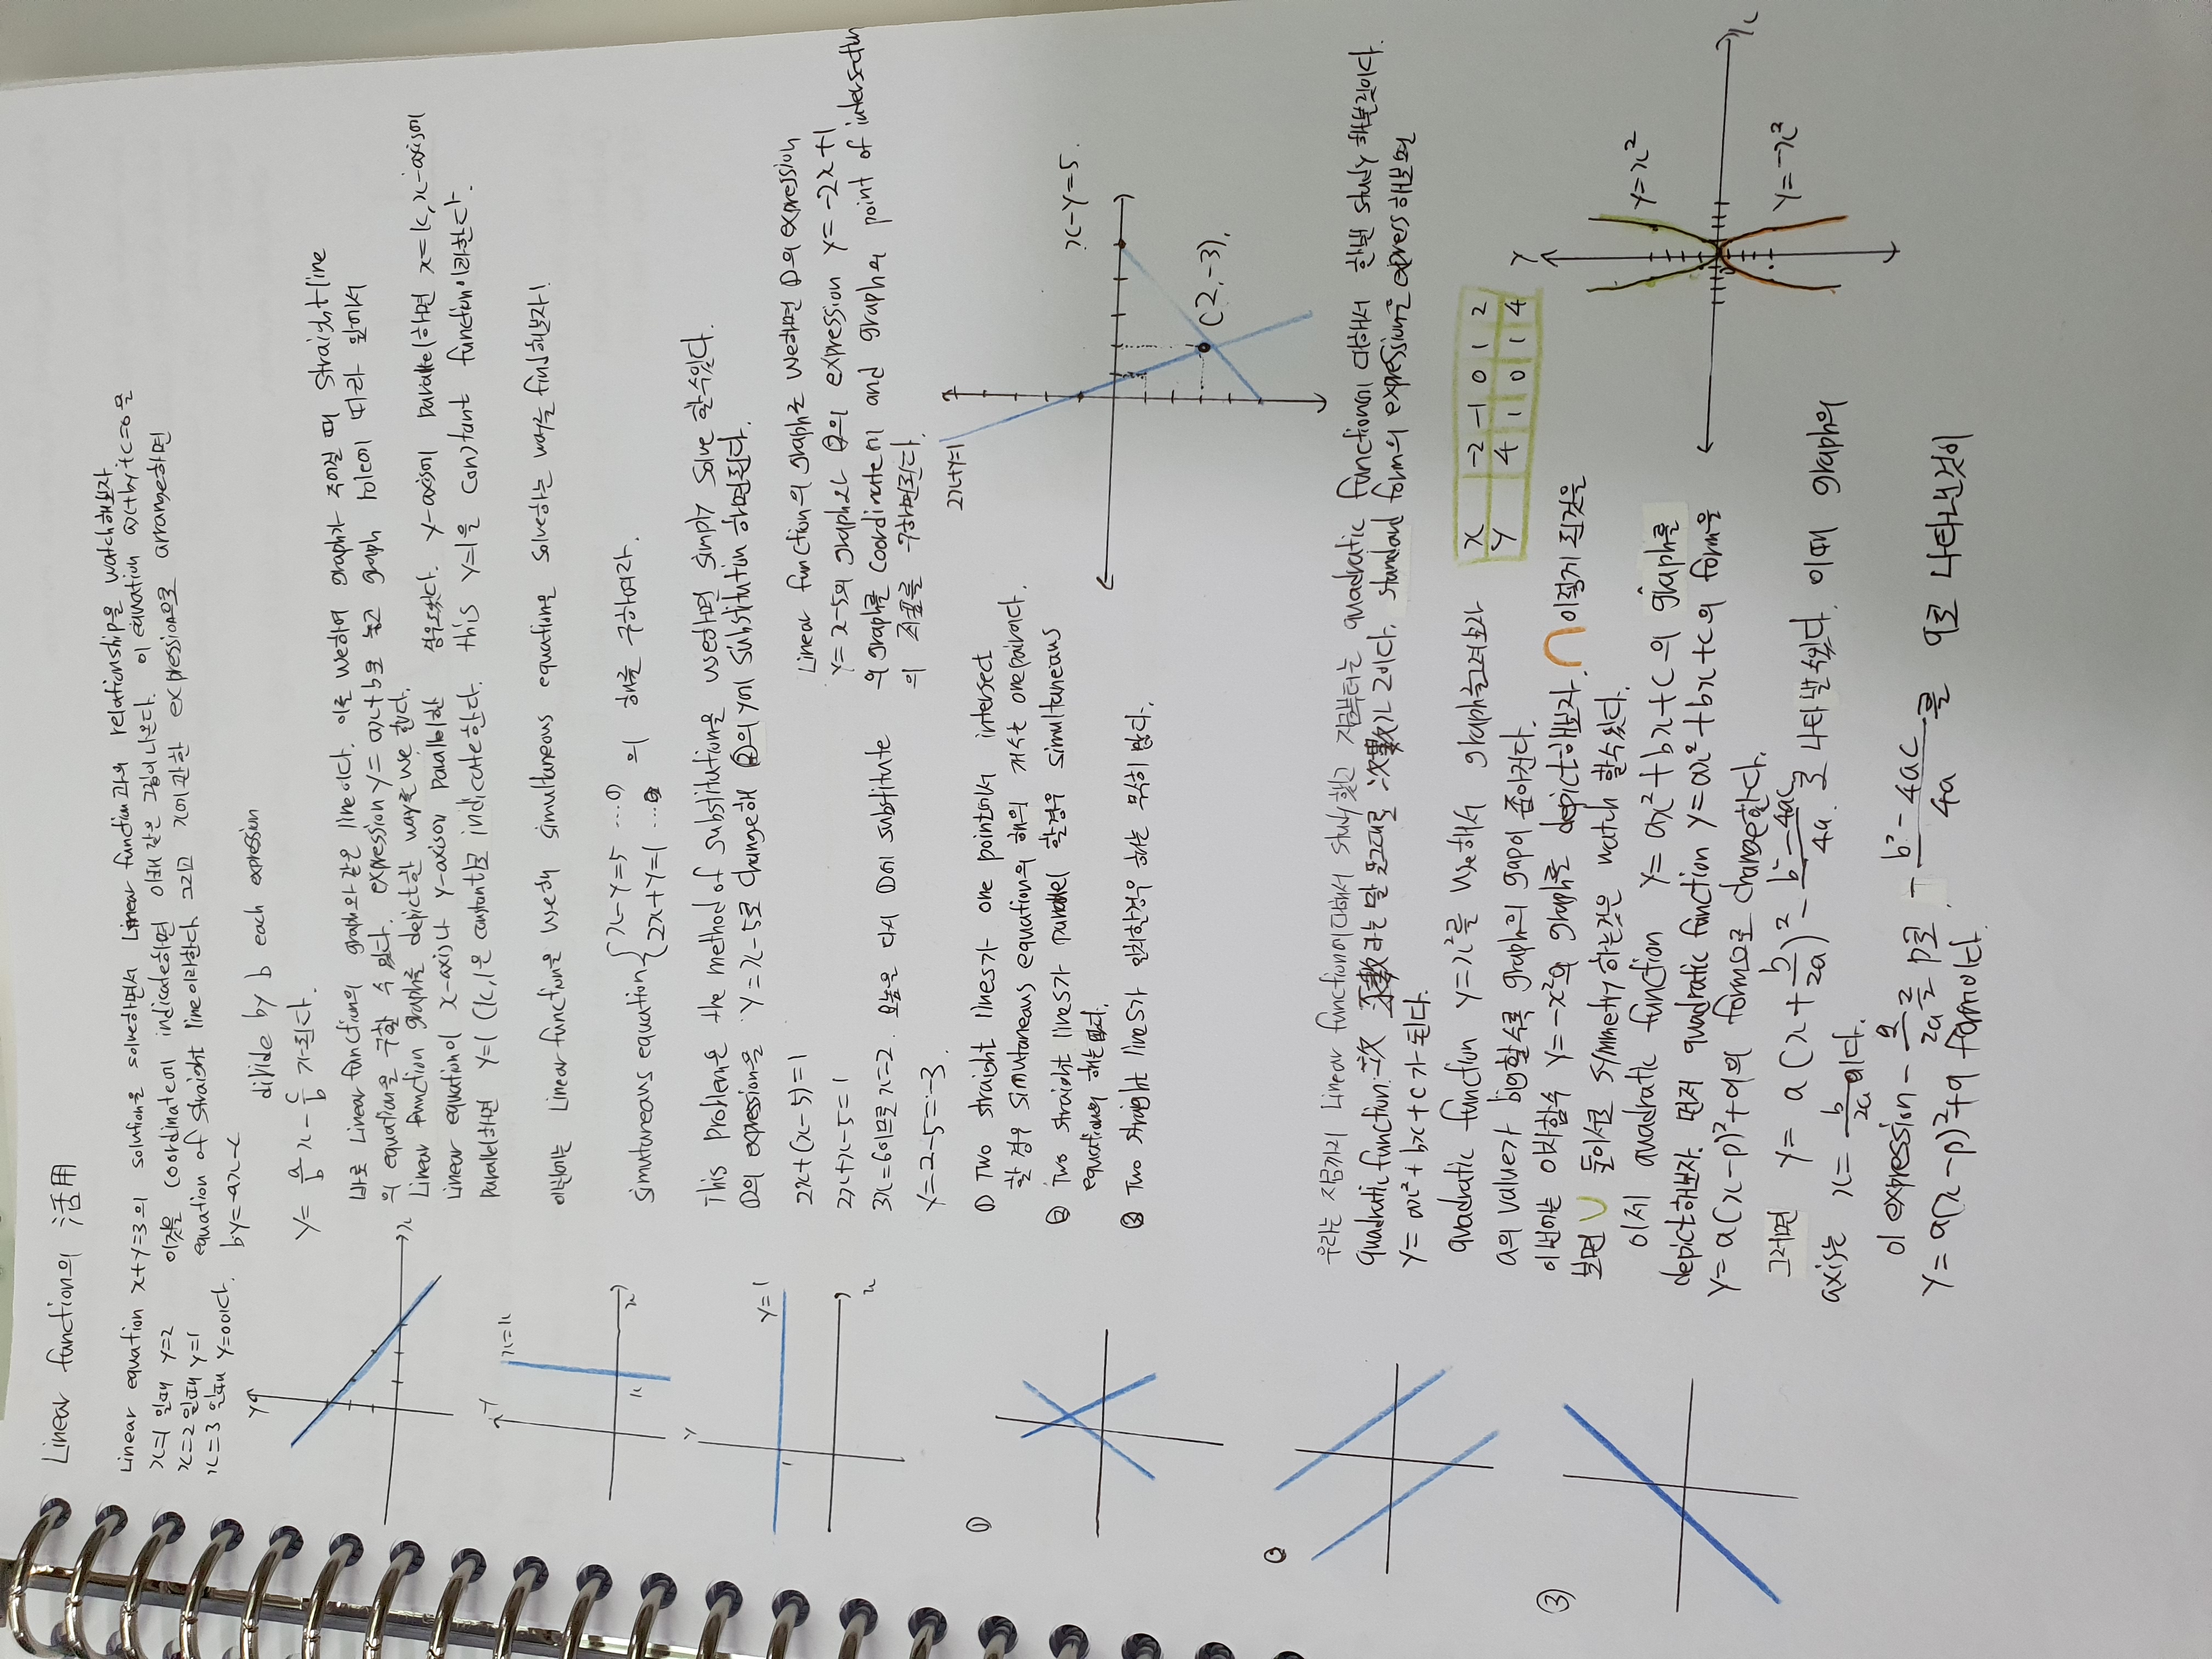 Linear function의 活用
Linear equation x+y=3의 solution을 solve하면서 Linear function과의 relationship을 watch해보자
x=1 일때 y=2 이것을 coordinate에 indicate하면 아래 같은 그림이 나온다. 이 equation ax+by+c=0을
x=2 일때 y=1 equation of straight line이라한다 그리고 x에 관한 expression으로 arrange하면
x=3 일때 y=0이다. by=-ax-c
divide by b each expression
y= -a/b x - c/b 가된다.
바로 Linear function의 graph와 같은 line이다. 이로 use하여 graph가 주어질 때 straight line
의 equation을 구할 수 있다. expression y=ax+b로 놓고 graph role에 따라 알아서
Linear function graph를 depict한 way를 use 한다.
Linear equation이 x-axis나 y-axis에 parallel한 경우도있다. y-axis에 parallel하면 x=k, x-axis에
parallel하면 y=l (k, l은 constant)로 indicate한다. this y=l을 constant function이라한다.
이번에는 Linear function을 use해 simultaneous equation을 solve하는 way를 find해보자!
simultaneous equation { x-y=5 ...① 2x+y=1 ...② 의 해를 구하여라.
This problem은 the method of substitution을 use하면 simply solve 할수있다.
①의 expression을 y=x-5로 change해 ②의 y에 substitution 하면된다.
2x+(x-5)=1
2x+x-5=1
3x=6이므로 x=2. 오늘은 다시 ①에 substitute
y=2-5=-3.
Linear function의 graph로 use하면 ①의 expression
y=x-5의 graph와 ②의 expression y=-2x+1
의 graph를 coordinate에 and graph의 point of intersection
의 좌표를 구하면된다.
2x+y=1
x-y=5.
(2,-3).
① Two straight lines가 one point에서 intersect
할 경우 simultaneous equation의 해의 개수는 one pair이다.
② Two straight lines가 parallel 할경우 simultaneous
equation의 해는 없다.
③ Two straight lines가 일치한경우 해는 무수히 많다.
y
x
y
x=k
k
x
y
y=l
x
①
②
③
우리는 지금까지 Linear function에 대해서 study 했고 지금부터는 quadratic function에 대해서 한번 study 해볼것이다.
quadratic function: 二次 函數라는 말 그대로 次數가 2이다. standard form의 expression을 express해보면
y=ax²+bx+c가 된다.
quadratic function y=x²를 use해서 graph를그려보자
x -2 -1 0 1 2
y 4 1 0 1 4
a의 value가 big할수록 graph의 gap이 좁아진다.
이번에는 이차함수 y=-x²의 graph로 depict해보자. ∩이렇게 된것을
보면 ∪ 둘이서로 symmetry하는것을 watch 할수있다.
이제 quadratic function y=ax²+bx+c의 graph를
depict해보자. 먼저 quadratic function y=ax²+bx+c의 form을
y=a(x-p)²+q의 form으로 change한다.
그러면 y=a(x+b/2a)² - b²-4ac/4a 로 나타낼 수있다. 이때 graph의
axis는 x=-b/2a이다.
이 expression -b/2a를 p로, -b²-4ac/4a를 q로 나타낸것이
y=a(x-p)²+q form이다.
y
x
y=x²
y=-x²